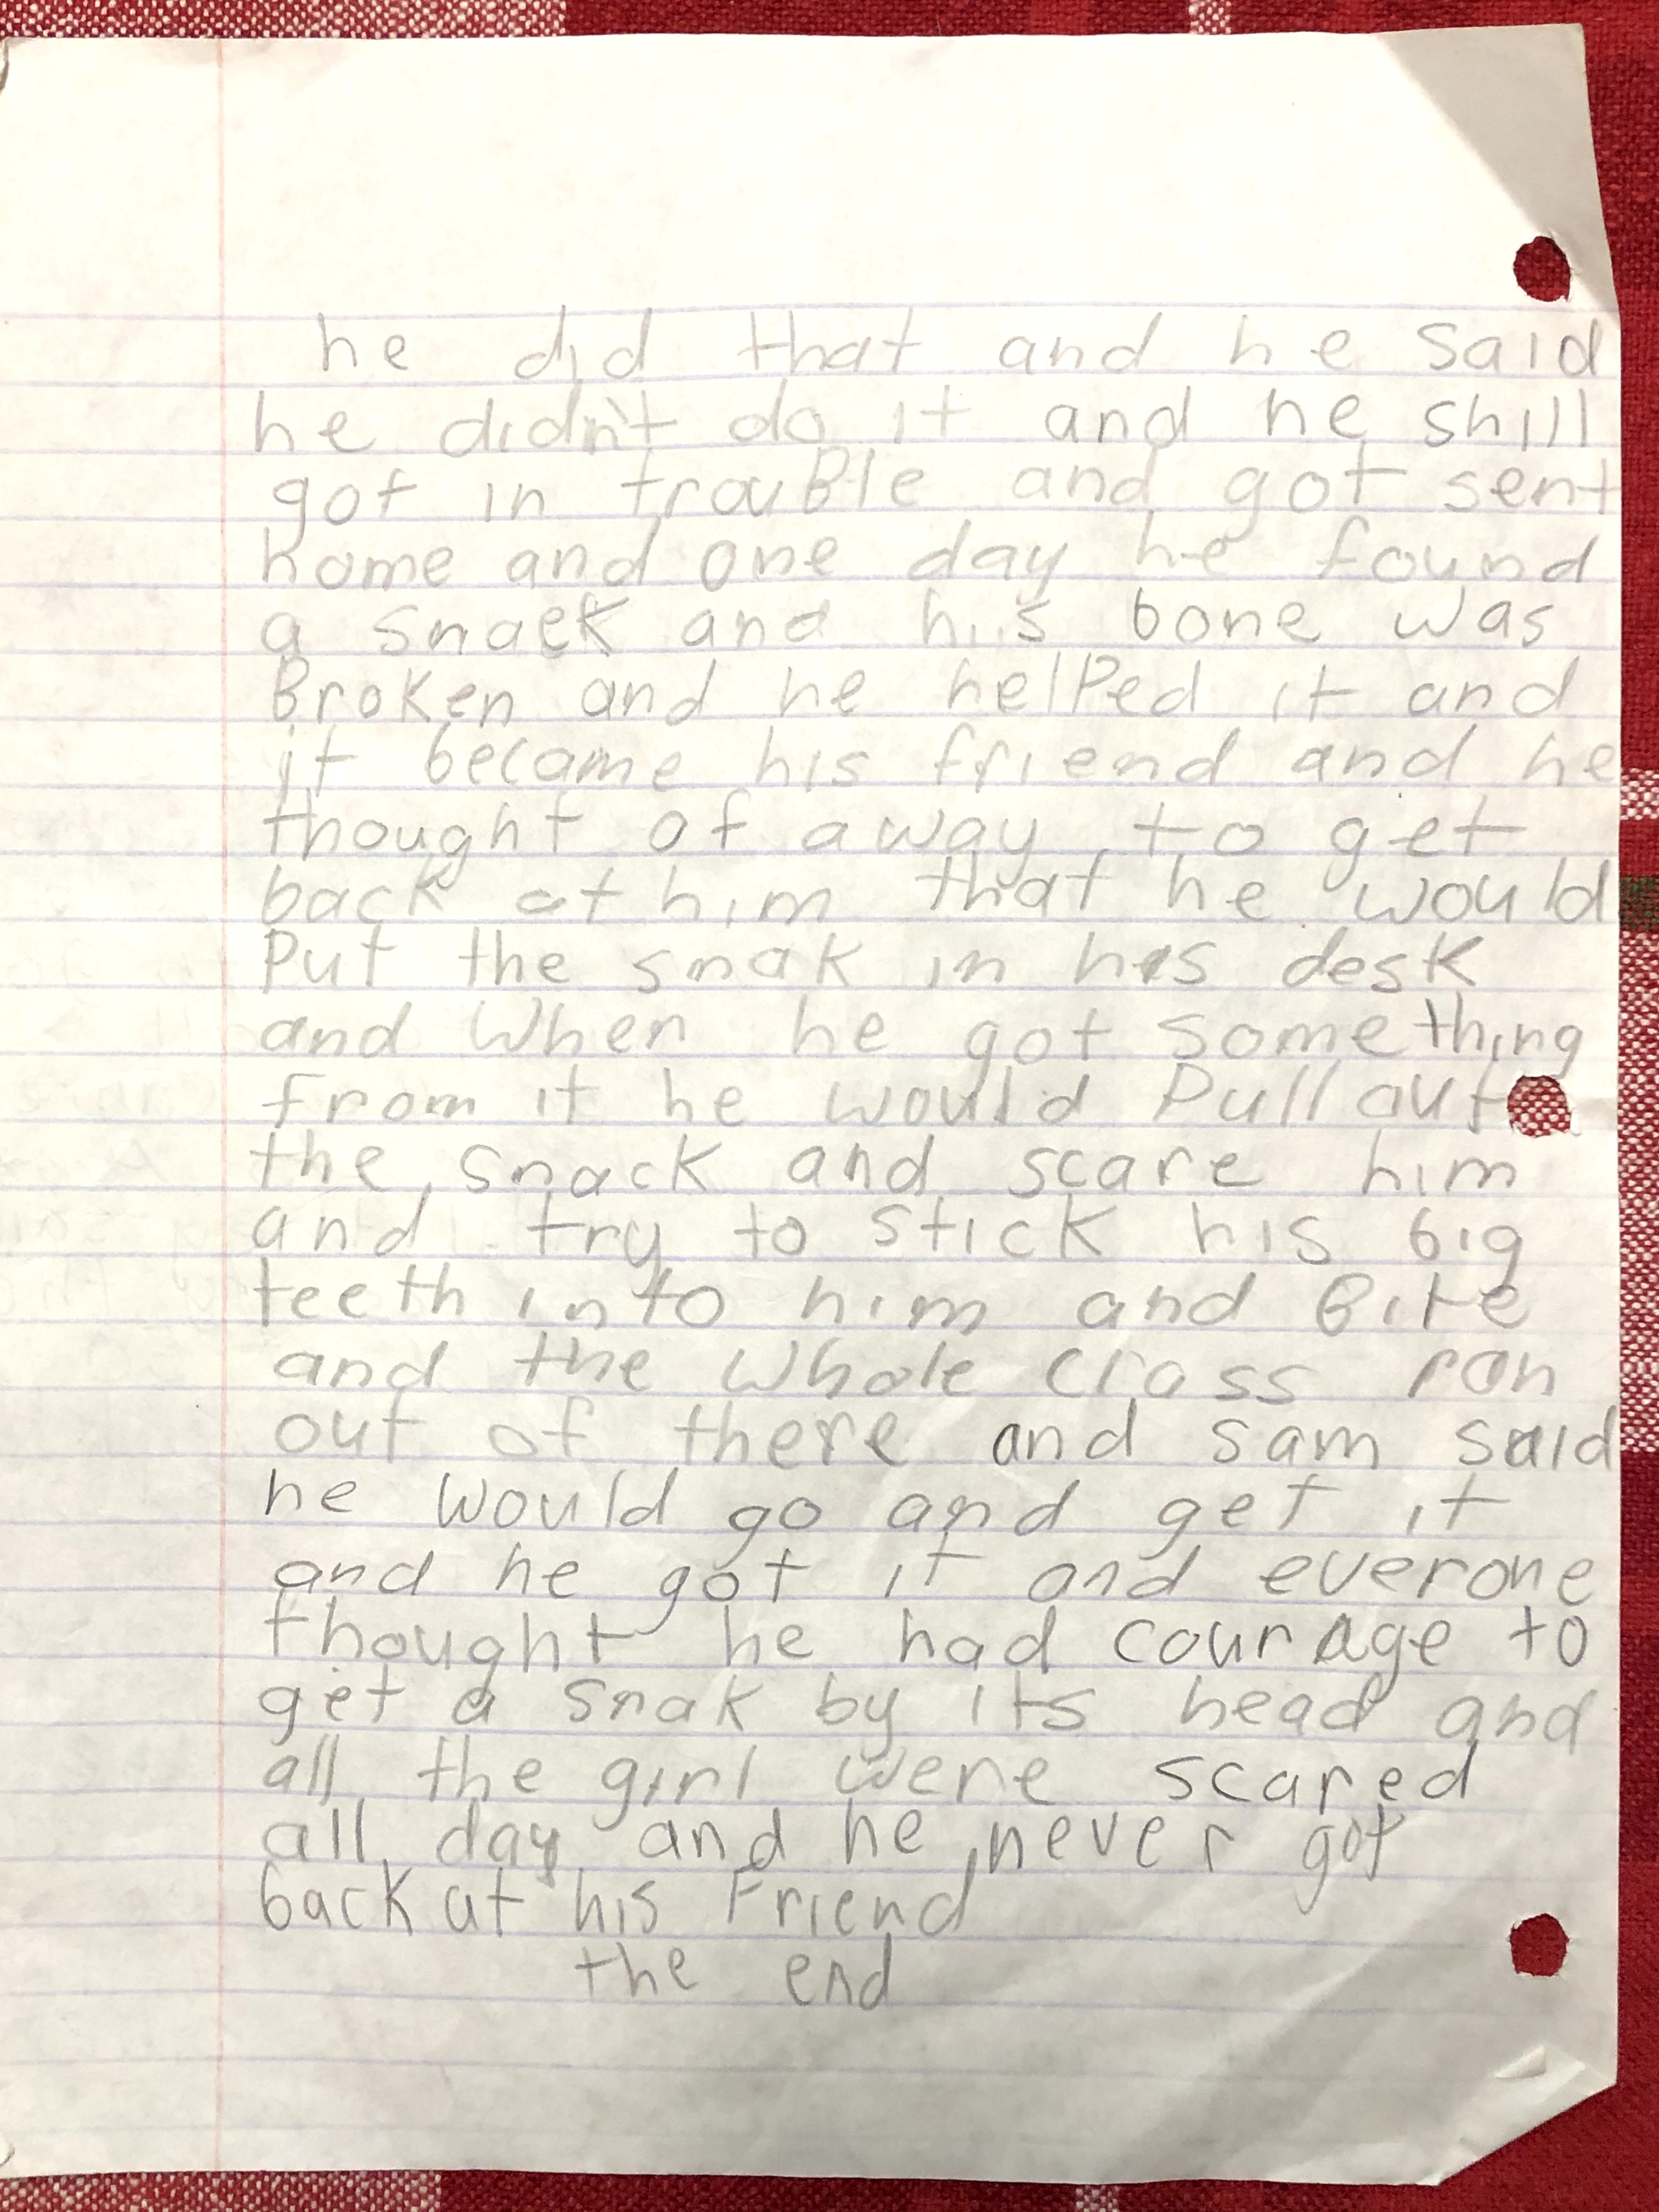 he did that and he said
he didn't do it and he shill
got in trouBle and got sent
home and one day he found
a snaek and his bone was
Broken and he helPed it and
it became his friend and he
thought of a way to get
back at him that he would
Put the snak in his desk
and when he got something
from it he would Pull out
the snack and scare him
and try to stick his big
teeth into him and Bite
and the whole class ran
out of there and sam said
he would go and get it
and he got it and everone
thought he had courage to
get a snak by its head and
all the girl were scared
all day and he never got
back at his Friend
the end